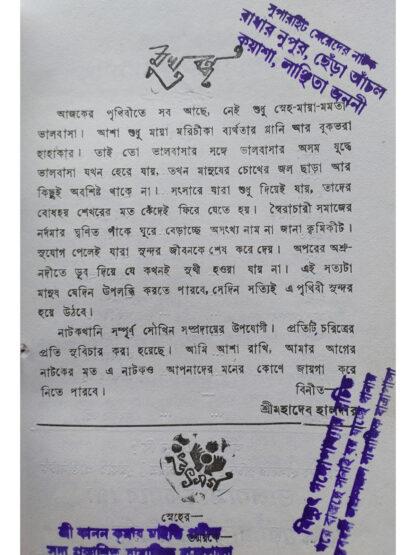 সুপারহিট মেয়েদের নাটক
রাধার নুপুর, ছেঁড়া আঁচল
কুয়াশা, লাঞ্ছিতা জননী
মুখবন্ধ
আজকের পৃথিবীতে সব আছে, নেই শুধু স্নেহ-মায়া-মমতা
ভালবাসা। আশা শুধু মায়া মরিচীকা ব্যর্থতার গ্লানি আর বুকভরা
হাহাকার। তাই তো ভালবাসার সঙ্গে ভালবাসার অসম যুদ্ধে
ভালবাসা যখন হেরে যায়, তখন মানুষের চোখের জল ছাড়া আর
কিছুই অবশিষ্ট থাকে না। সংসারে যারা শুধু দিয়েই যায়, তাদের
বোধহয় শেখরের মত কেঁদেই ফিরে যেতে হয়। স্বৈরাচারী সমাজের
নর্দমার ঘৃণিত পাঁকে ঘুরে বেড়াচ্ছে অসংখ্য নাম না জানা কৃমিকীট।
সুযোগ পেলেই যারা সুন্দর জীবনকে শেষ করে দেয়। অপরের অশ্রু-
নদীতে ডুব দিয়ে যে কখনই সুখী হওয়া যায় না। এই সত্যটা
মানুষ যেদিন উপলব্ধি করতে পারবে, সেদিন সত্যিই এ পৃথিবী সুন্দর
হয়ে উঠবে।
নাটকখানি সম্পূর্ণ সৌখিন সম্প্রদায়ের উপযোগী। প্রতিটি চরিত্রের
প্রতি সুবিচার করা হয়েছে। আমি আশা রাখি, আমার আগের
নাটকের মত এ নাটকও আপনাদের মনের কোণে জায়গা করে
নিতে পারবে।
বিনীত—
শ্রীমহাদেব হালদার
উৎসর্গ
স্নেহের—
শ্রী কানন কুমার
বিদ্যুৎ গঙ্গোপাধ্যায় রচিত